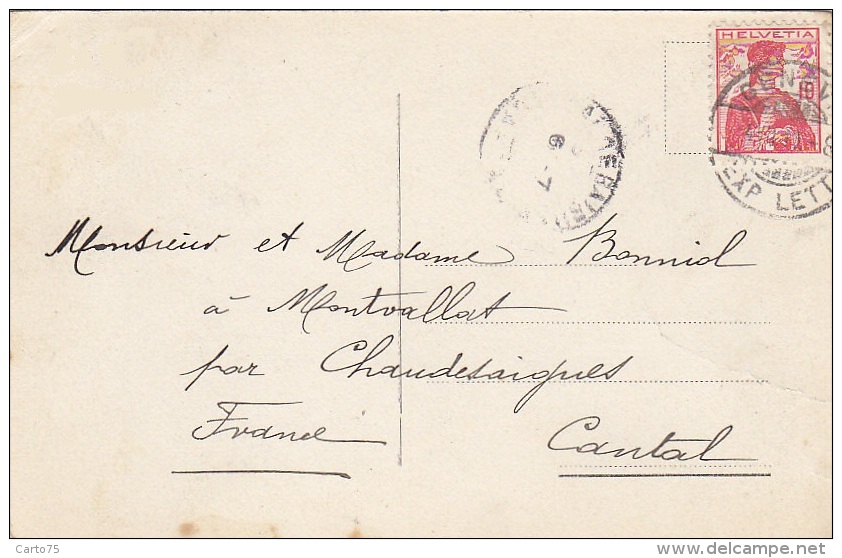 HELVETIA
10
EXP. LETT
Monsieur et Madame Bonniol
à Montvallat
par Chaudesaigues
France Cantal
Carto75
www.delcampe.net